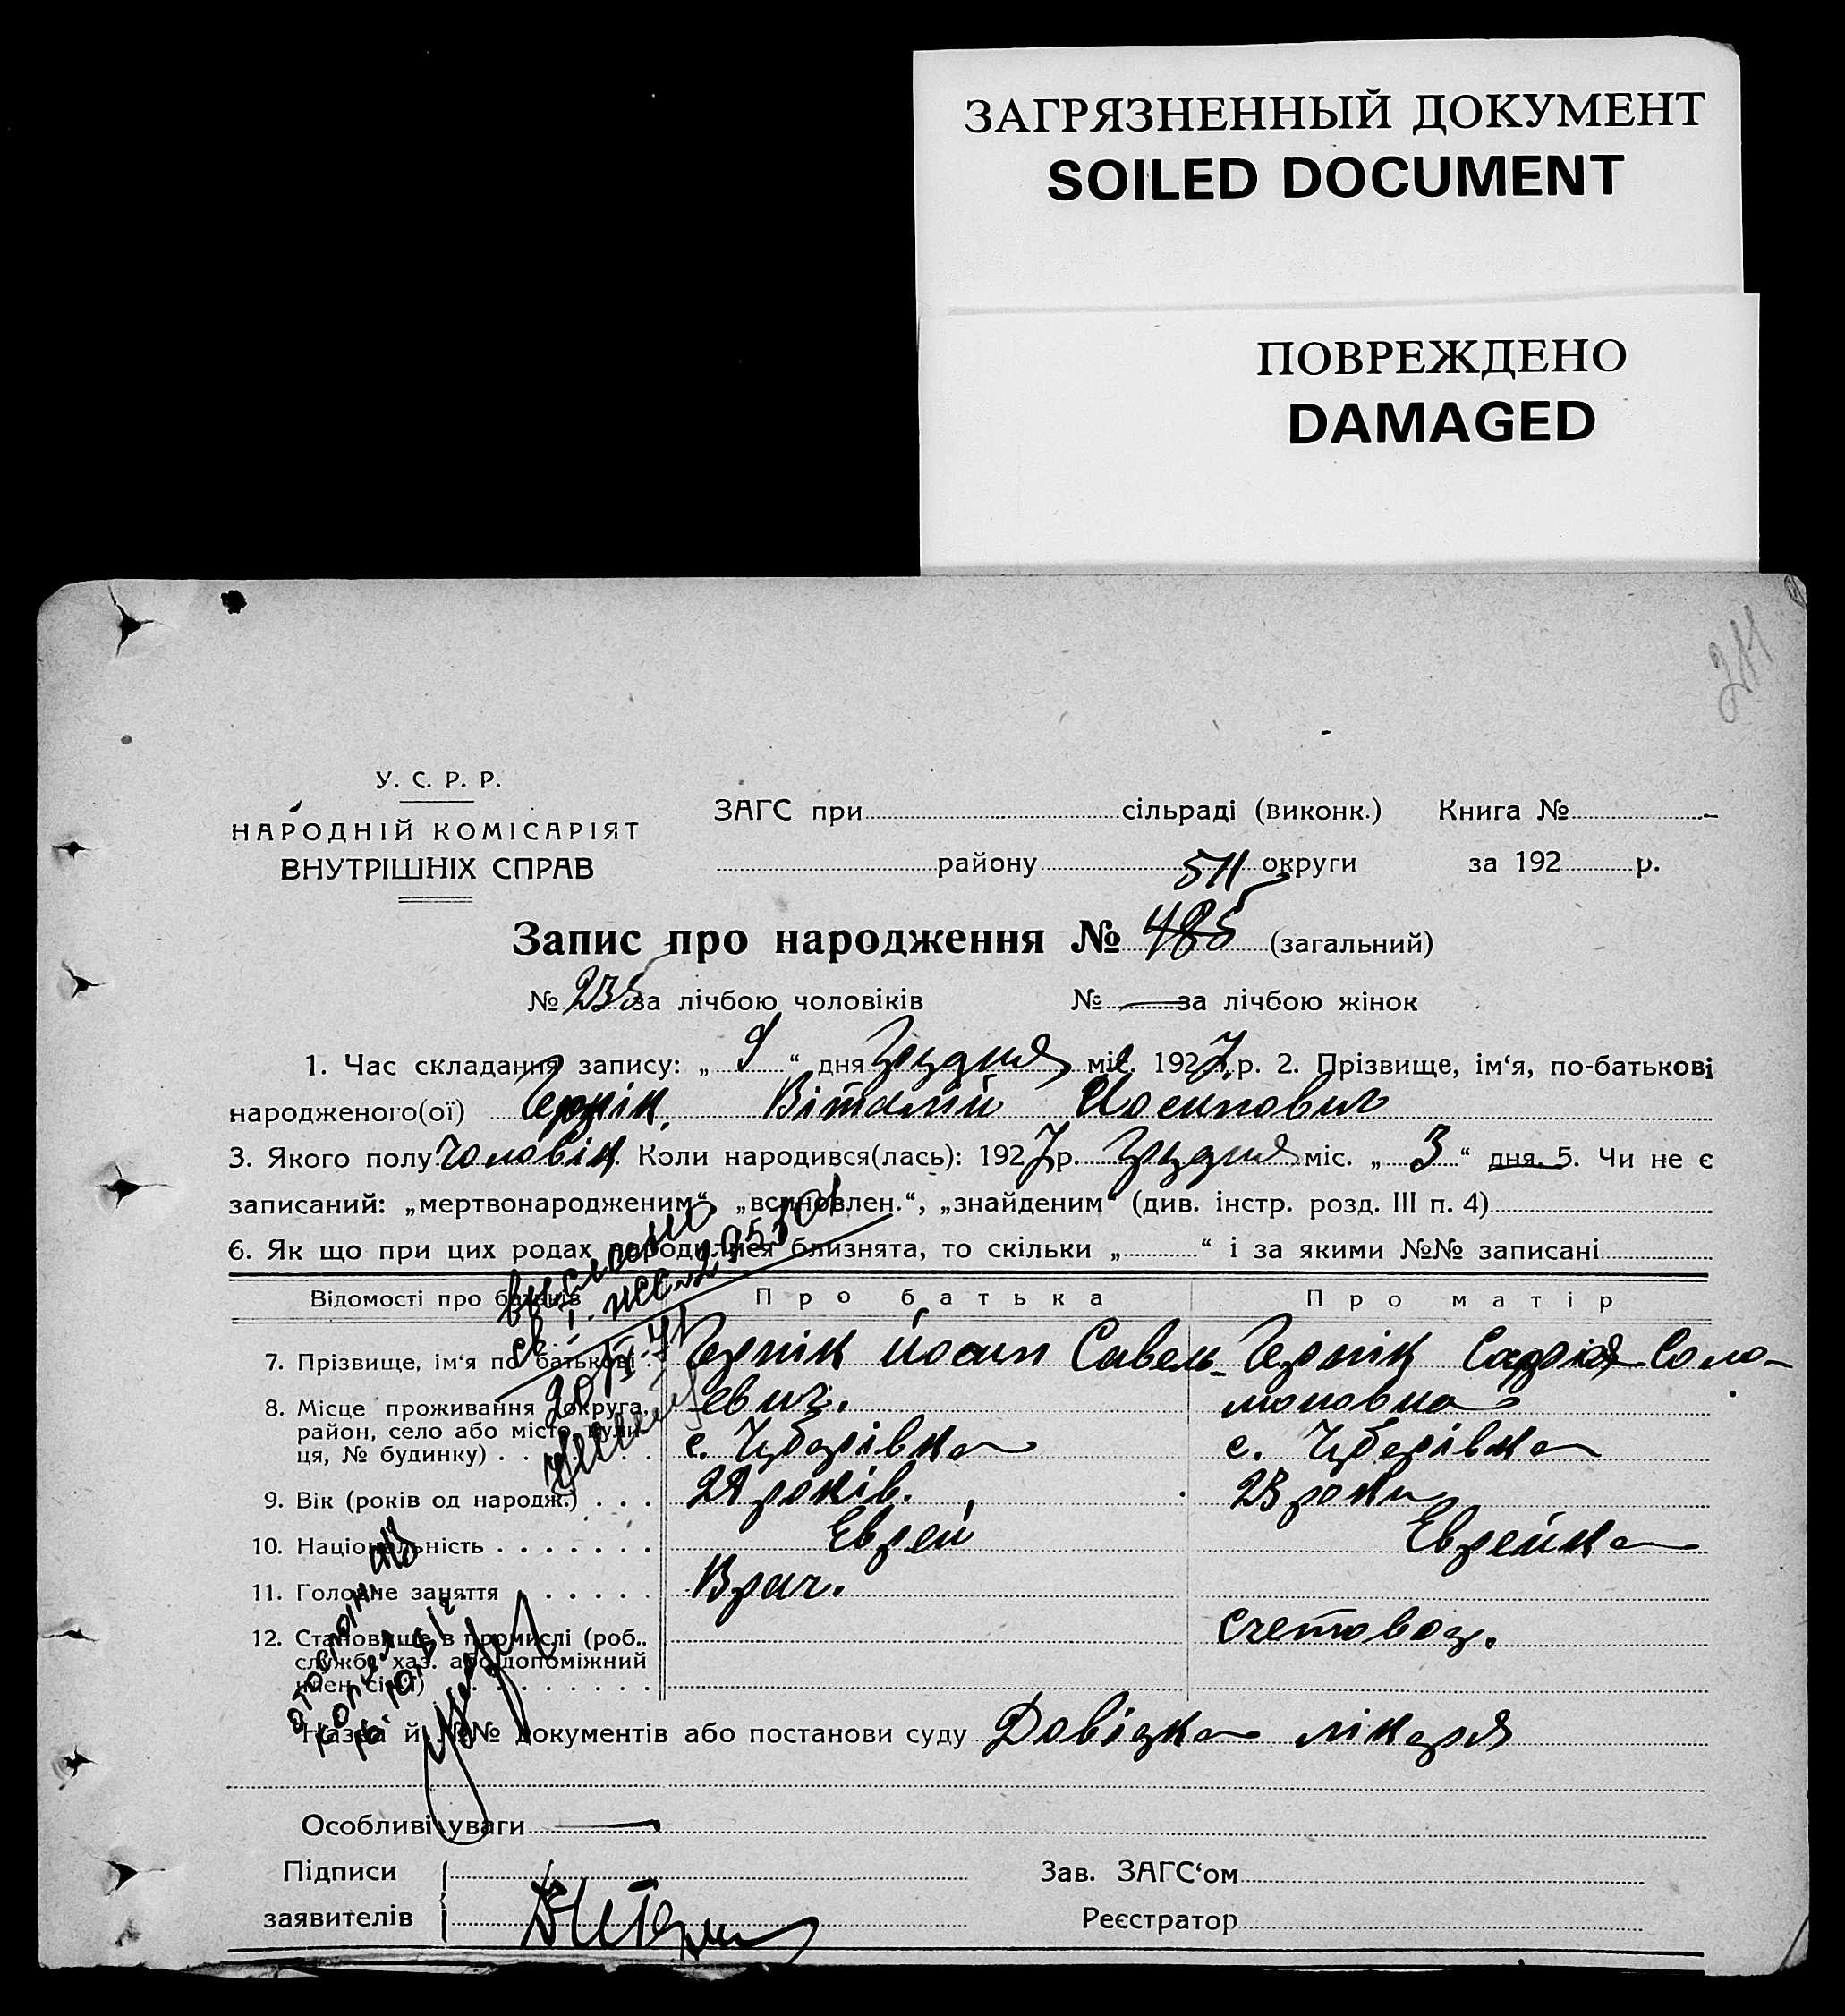 ЗАГРЯЗНЕННЫЙ ДОКУМЕНТ
SOILED DOCUMENT
ПОВРЕЖДЕНО
DAMAGED
У. С. Р. Р.
НАРОДНІЙ КОМІСАРІЯТ
ВНУТРІШНІХ СПРАВ
ЗАГС при сільраді (виконк.) Книга №
району округи за 192 р.
511
Запис про народження № 485 (загальний)
№ 235 за лічбою чоловіків № — за лічбою жінок
1. Час складання запису: „ 9 “ дня Грудня міс. 1927 р. 2. Прізвище, ім‘я, по-батькові
народженого(ої) Віталій Иосипович
3. Якого полу Чоловік. Коли народився(лась): 1927 р. Грудня міс. „ 3 “ дня. 5. Чи не є
записаний: „мертвонародженим“, „всиновлен.“, „знайденим“ (див. інстр. розд. III п. 4)
6. Як що при цих родах народилися близнята, то скільки „ “ і за якими №№ записані
Відомості про батьків Про батька Про матір
7. Прізвище, ім‘я по батькові Йосип Савель- Соло-
8. Місце проживання (округа, евич. моновна
район, село або місто, вули-
ця, № будинку) с. Чубарівка с. Чубарівка
9. Вік (років од народж.) років. 23 роки
10. Національність Еврей Еврейка
11. Головне заняття Врач.
12. Становище в промислі (роб., Счетовод.
службо. хаз. або допоміжний
член сім‘ї)
выслано
20/IV.71
Назва й №№ документів або постанови суду Довідка лікаря
Особливі уваги —
Підписи Зав. ЗАГС‘ом
заявителів Реєстратор